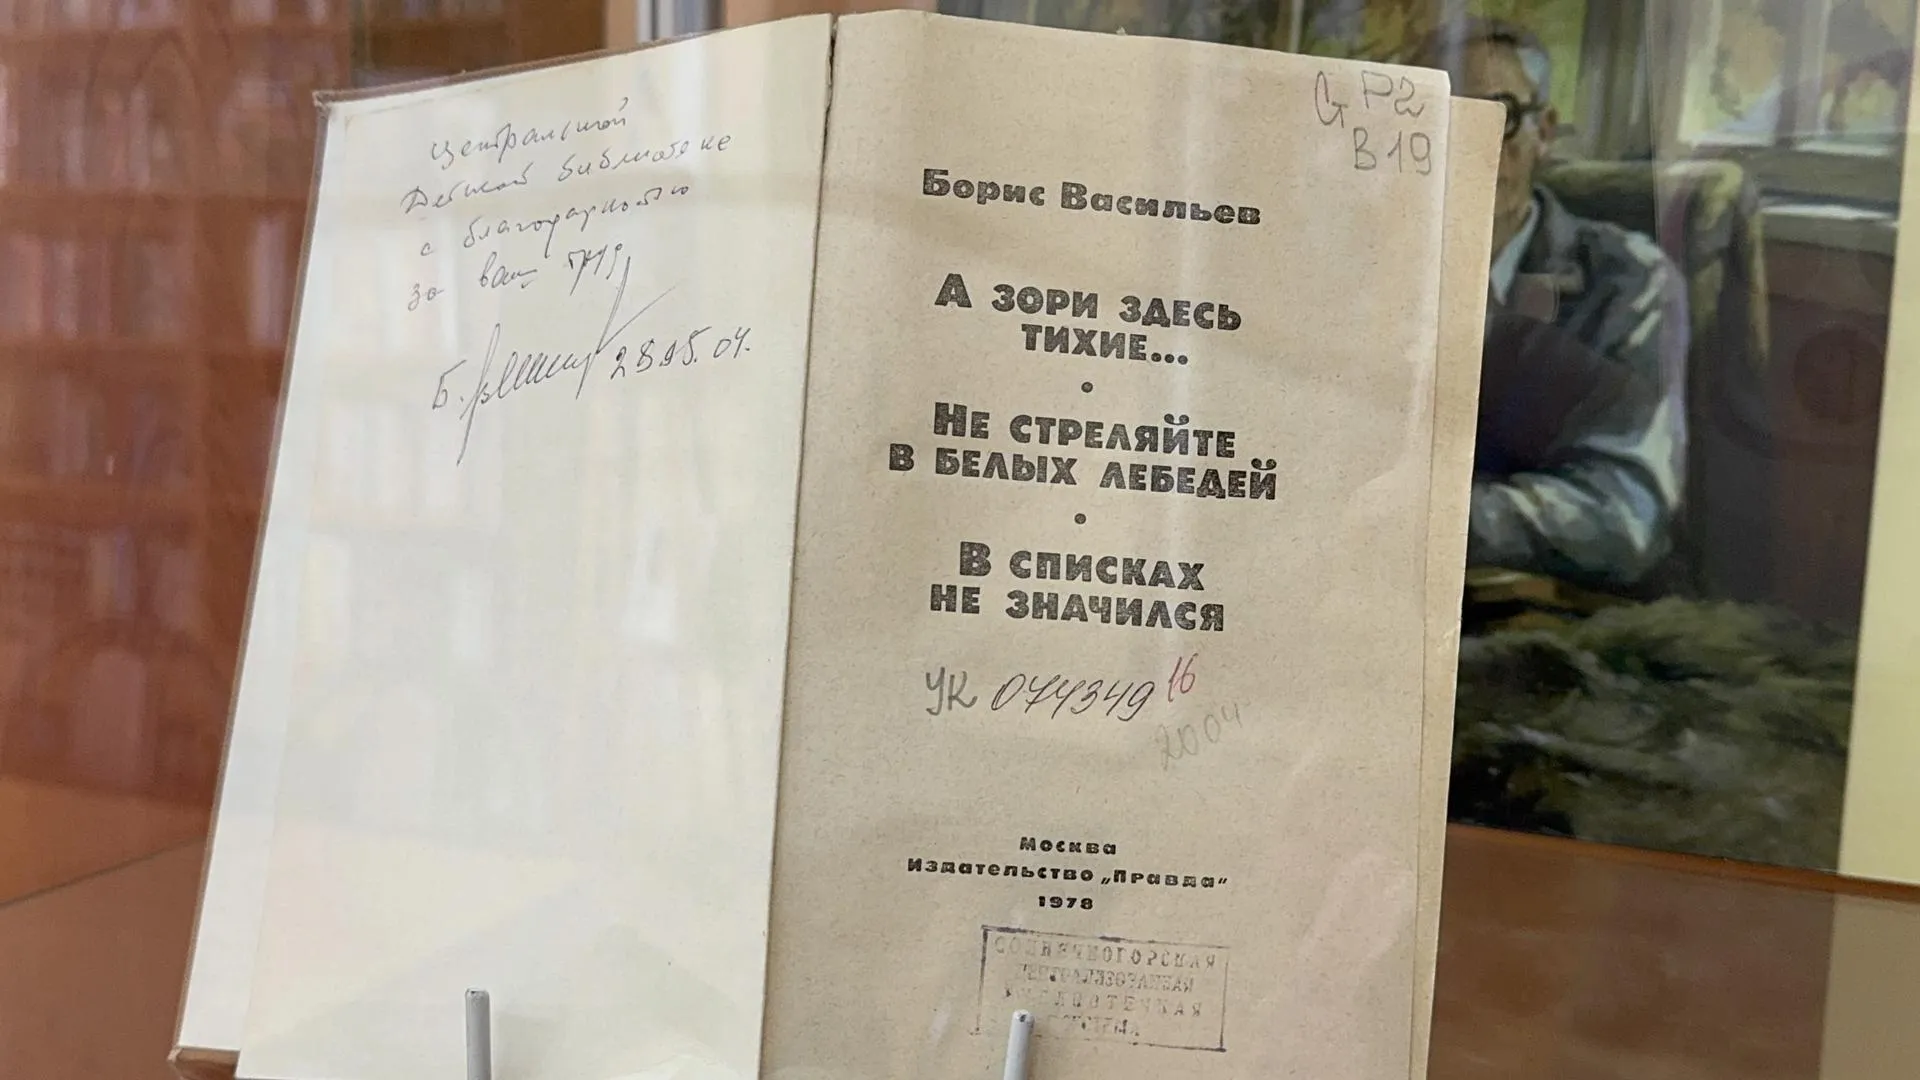 Центральной
Детской библиотеке
с благодарностью
за ваш труд
Б. Васильев 28.05.04.
G P2
В 19
Борис Васильев
А ЗОРИ ЗДЕСЬ
ТИХИЕ...
•
НЕ СТРЕЛЯЙТЕ
В БЕЛЫХ ЛЕБЕДЕЙ
•
В СПИСКАХ
НЕ ЗНАЧИЛСЯ
УК 074349 16
2004
Москва
Издательство „Правда“
1978
СОЛНЕЧНОГОРСКАЯ
ЦЕНТРАЛИЗОВАННАЯ
БИБЛИОТЕЧНАЯ
СИСТЕМА